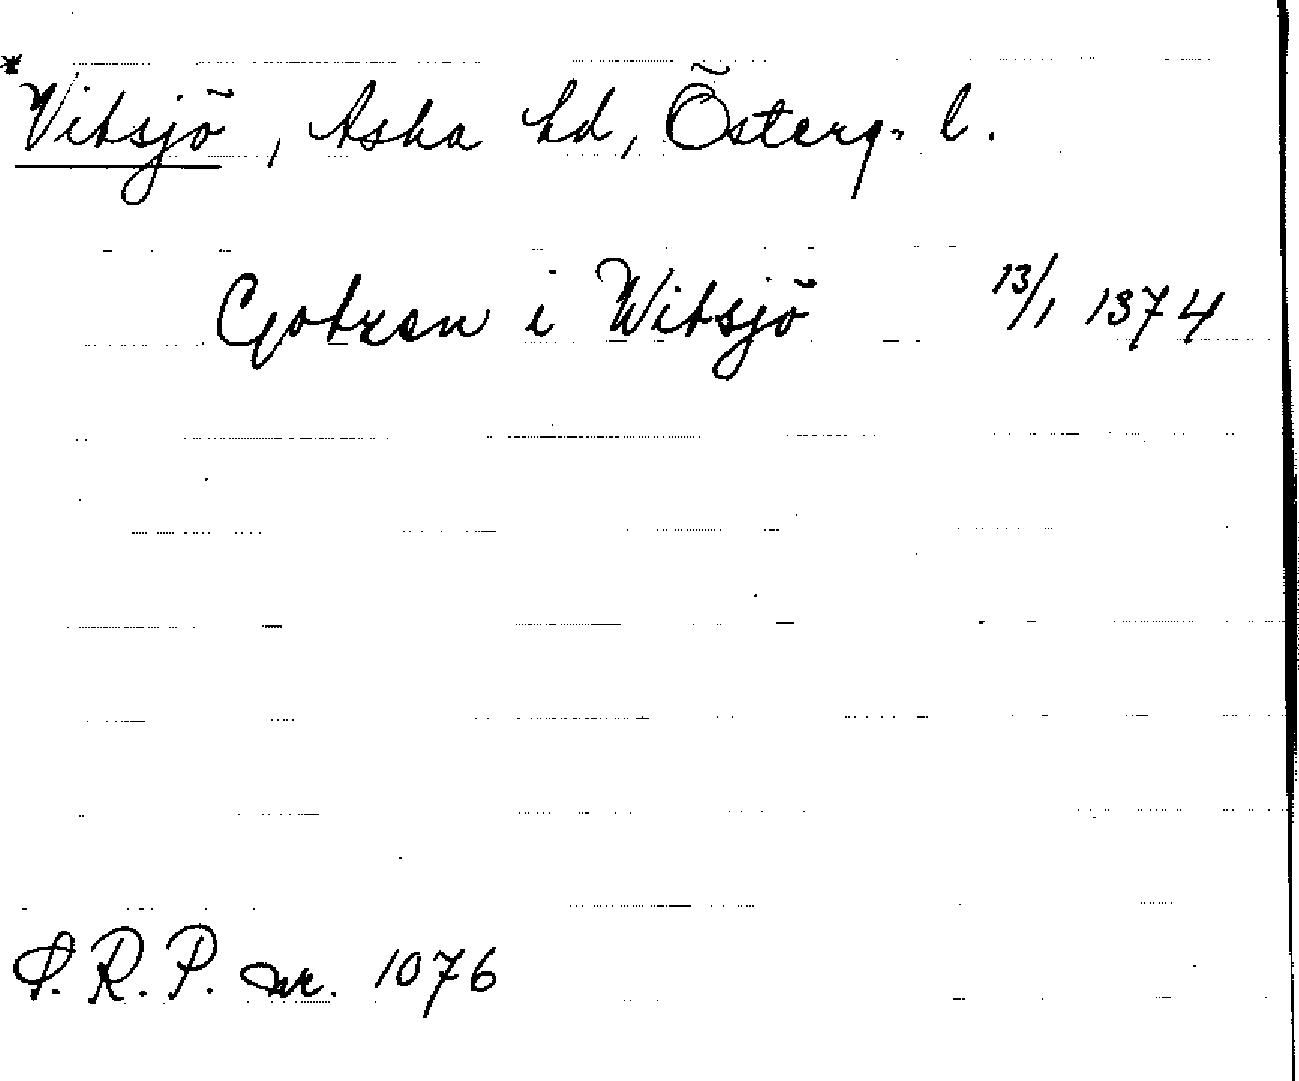 *Vitsjö, Aska hd, Österg. l.
Gotzen i Witsjö 13/1 1374
S.R.P. nr. 1076